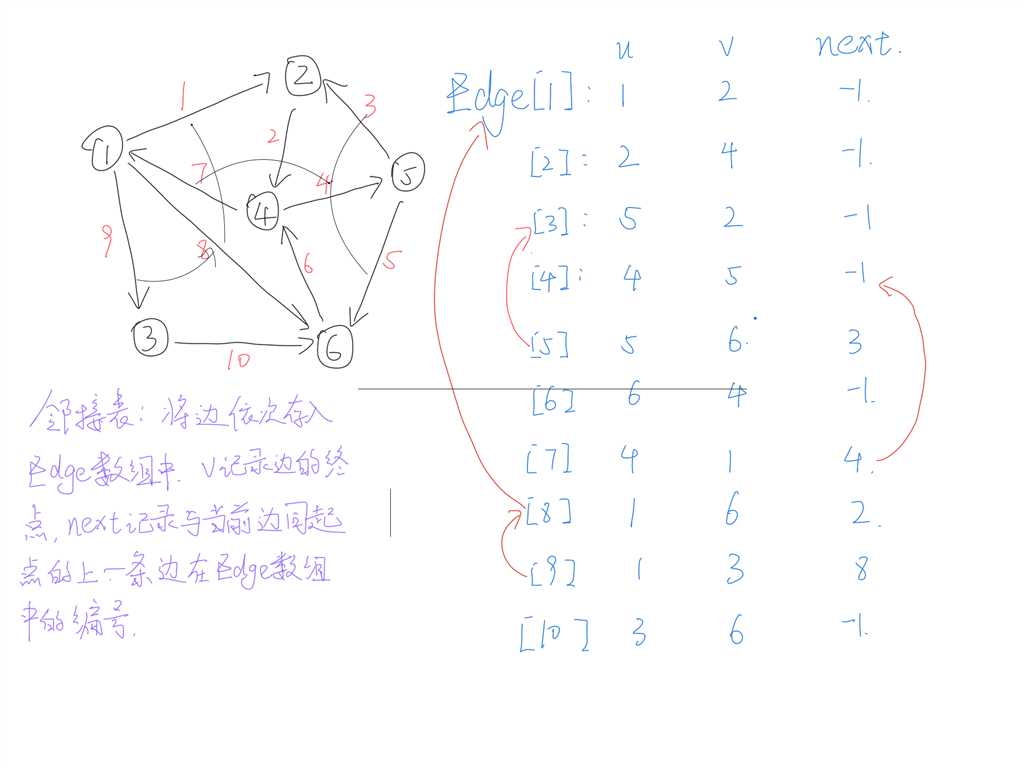 u v next.
Edge[1]: 1 2 -1.
[2]: 2 4 -1.
[3]: 5 2 -1
[4]: 4 5 -1
[5] 5 6. 3
[6] 6 4 -1.
[7] 4 1 4.
[8] 1 6 2.
[9] 1 3 8
[10] 3 6 -1.
1
2
3
1
2
5
7
4
4
9
8
6
5
3
6
10
邻接表：将边依次存入
Edge数组中. v记录边的终
点, next记录与当前边同起
点的上一条边在Edge数组
中的编号.